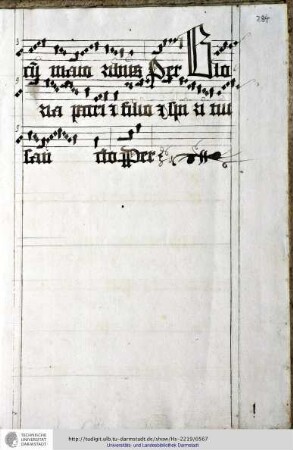 284
maio ribus Per Glo
ria patri & filio & spi ri tui
san cto Per
TECHNISCHE
UNIVERSITÄT
DARMSTADT
http://tudigit.ulb.tu-darmstadt.de/show/Hs-2219/0567
Universitäts- und Landesbibliothek Darmstadt